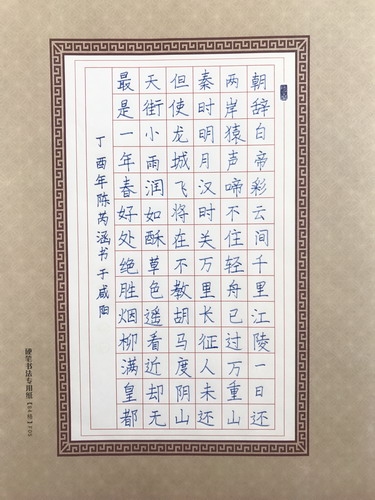 朝辞白帝彩云间千里江陵一日还
两岸猿声啼不住轻舟已过万重山
秦时明月汉时关万里长征人未还
但使龙城飞将在不教胡马度阴山
天街小雨润如酥草色遥看近却无
最是一年春好处绝胜烟柳满皇都
丁酉年陈芮涵书于咸阳
硬笔书法专用纸【84格】